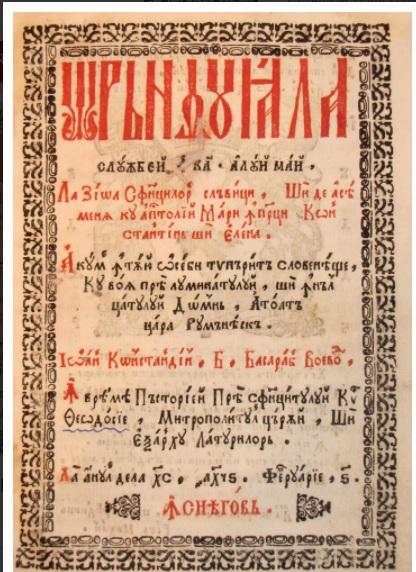 ѾРЪНДꙊꙖЛА
слꙋжбей . к҃а . алꙋй май .
Ла Зіѡа Сфинцилѡр слъвици , Ши де асѣ
меня кꙋ апⷭтолїй Мари ꙟпⷬци Кѡн
стантїнь ши Єлена .
Акꙋм ꙟтѫю тупърит словенеще ,
Кꙋ воꙗ прѣ лꙋминатꙋлꙋй , ши ꙟнъл
цатꙋлꙋй Дѡмнь , Атоатъ
цара Рꙋмънѣскъ .
Іѡань Кѡнстандїн , Б , Басараб Воевѡⷣ .
ꙟ врѣмѣ Пъсторїей Прѣ сфинцитꙋлꙋй Кѷⷬ
Ѳеѡдосїе , Митрополитꙋл църїй , Ши
Еѯархꙋ Латꙋрилорь .
Ла анꙋл дела хⷭ҇ , ҂ахчѕ . Фервꙋарїе , ѕ .
ꙟ снѣговь .